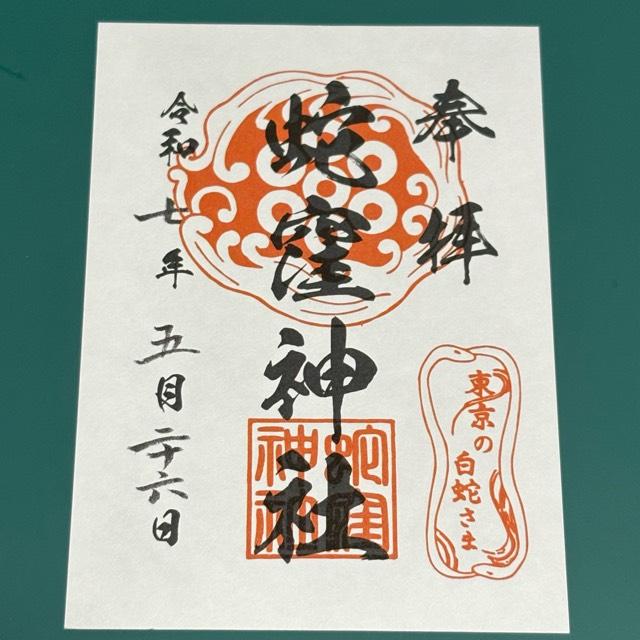 奉拝
蛇窪神社
令和七年五月二十六日
東京の
白蛇さま
蛇窪
神社